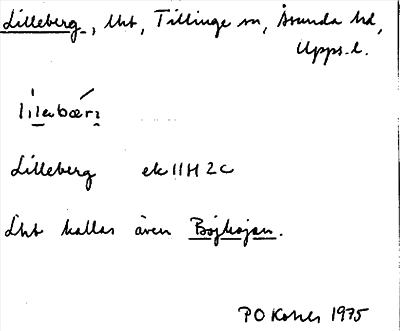 Lilleberg, lht, Tillinge sn, Åsunda hd,
Upps. l.
Lilleberg ek 11H 2c
Lht kallas även
PO 1975